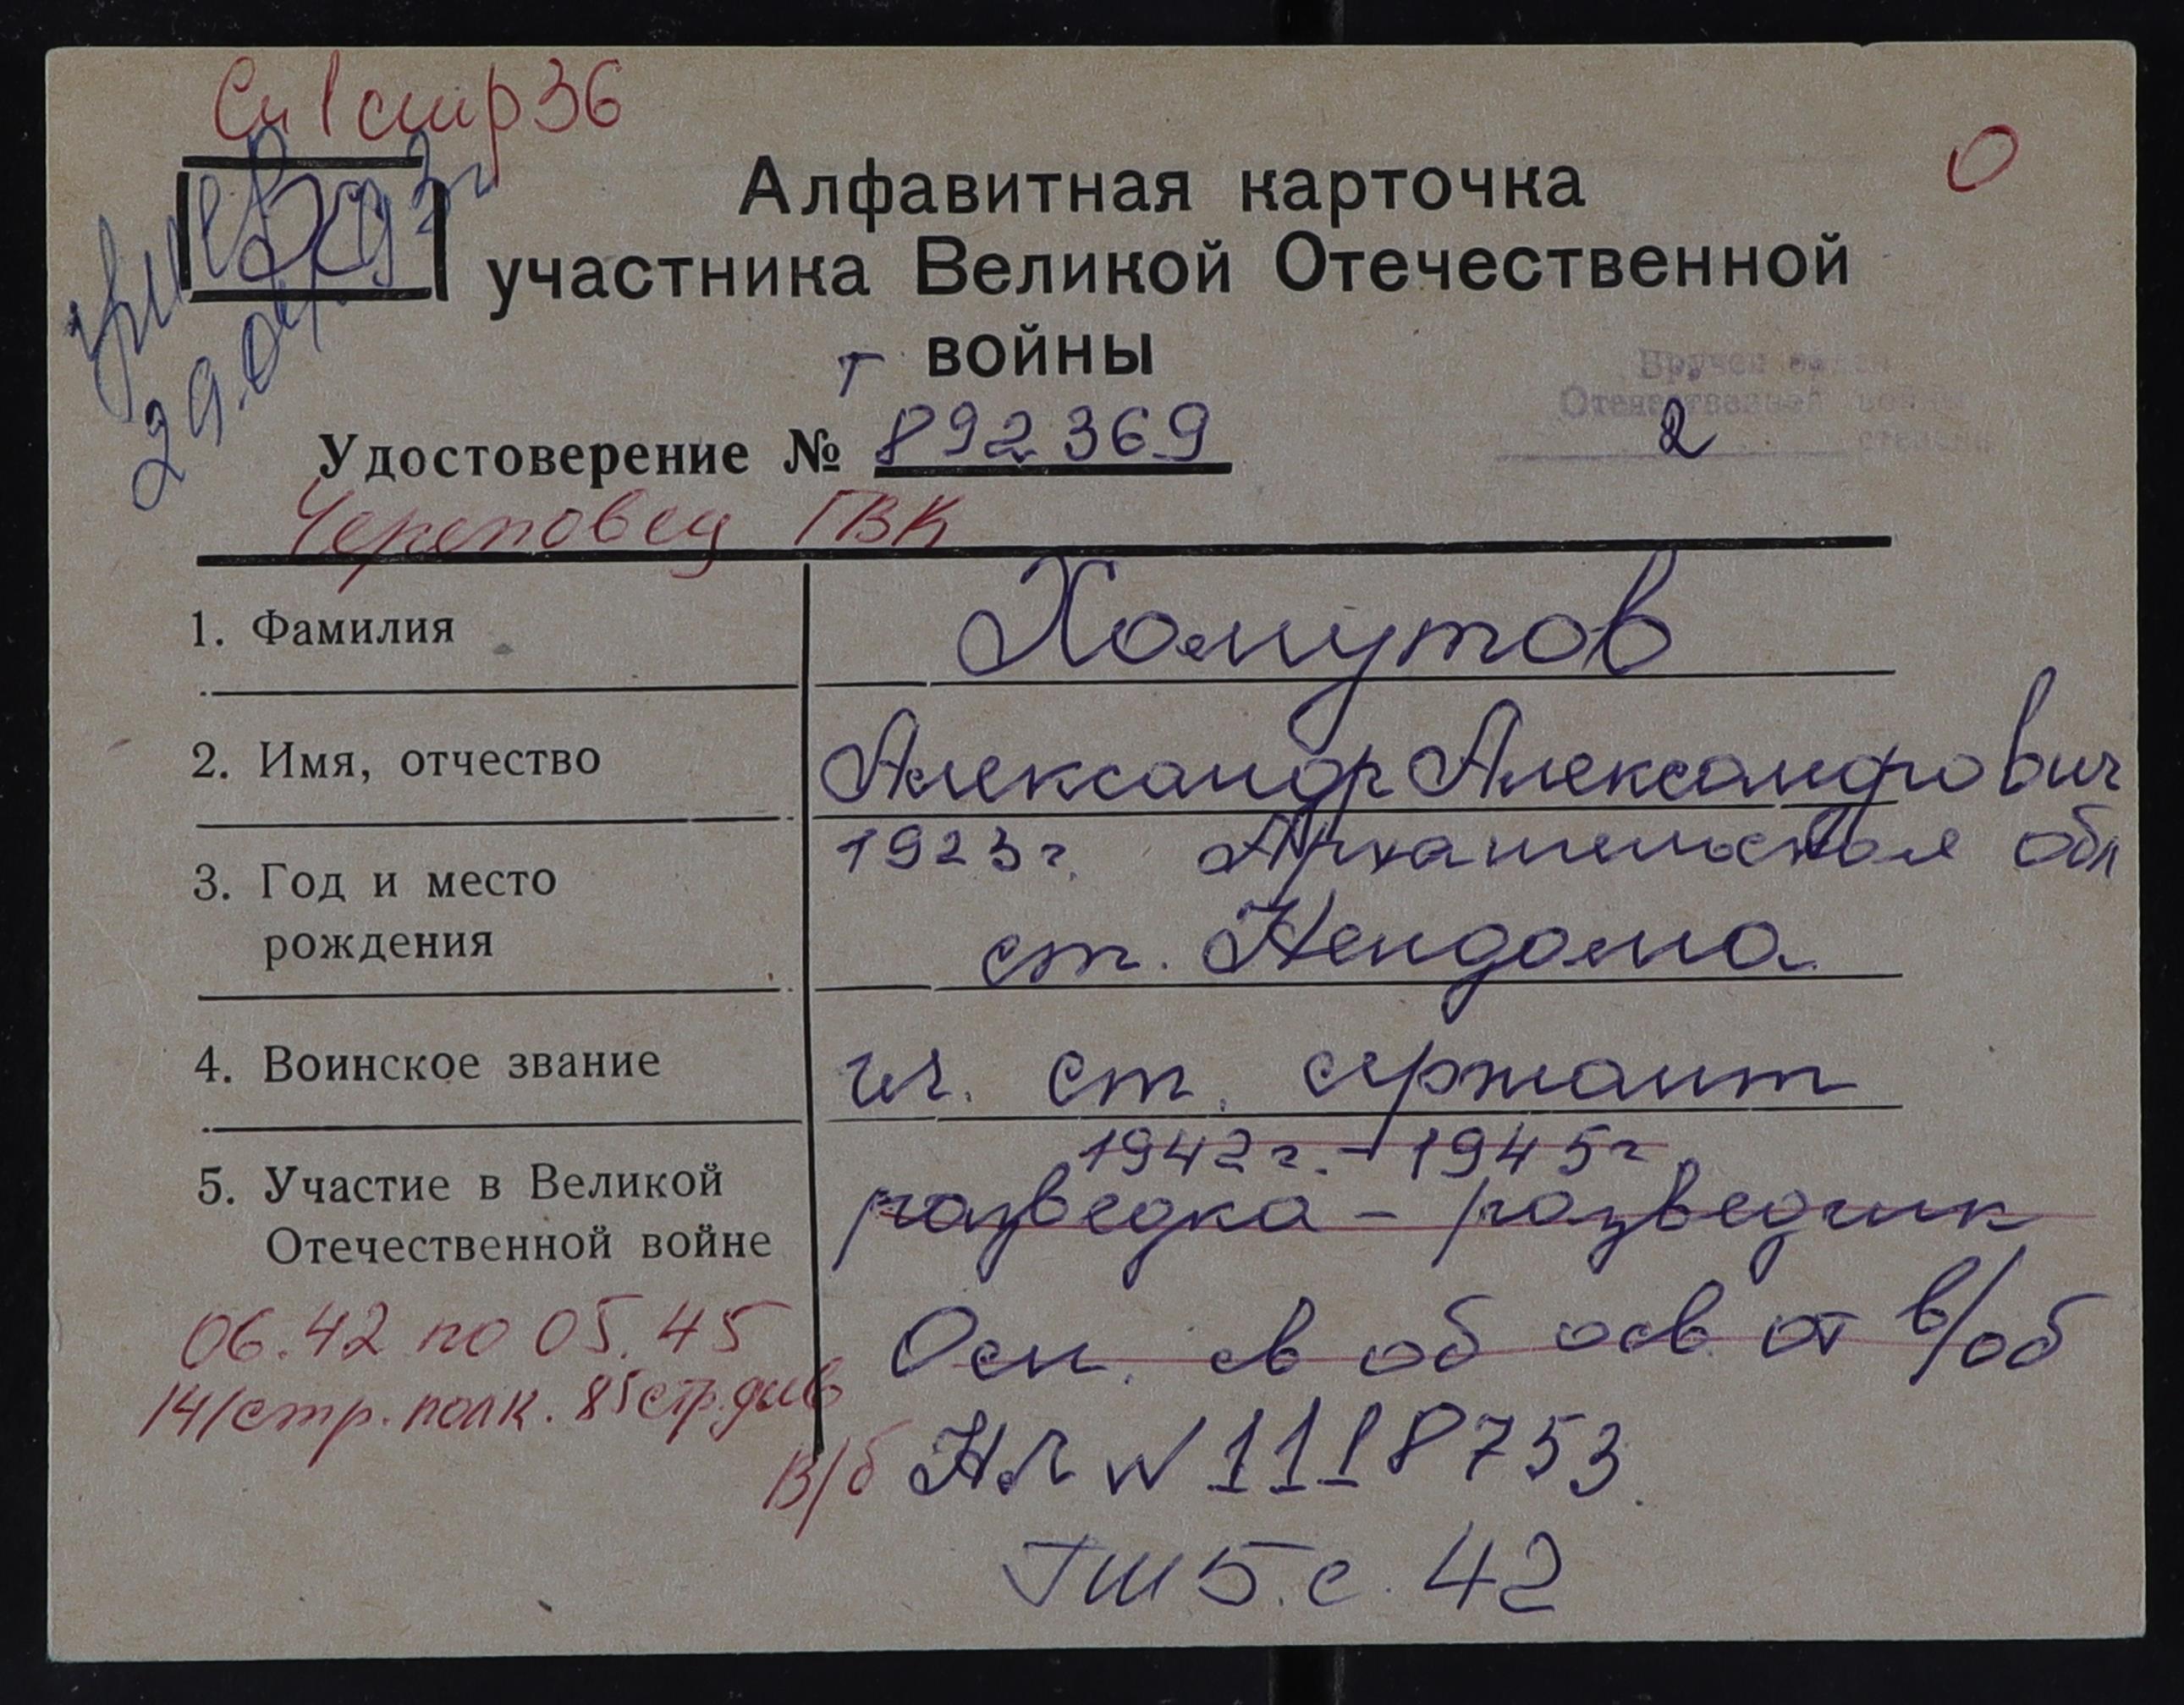 Сп 1 стр 36
О
29.04.93г
Алфавитная карточка
участника Великой Отечественной
войны
Вручен орден
Отечественной войны
2 степени
Удостоверение № Т 892369
Череповец ГВК
1. Фамилия Хомутов
2. Имя, отчество Александр Александрович
3. Год и место рождения 1923г. Архангельская обл
ст. Няндома
4. Воинское звание гв. ст. сержант
5. Участие в Великой Отечественной войне 1942г. - 1945г
разведка - разведчик
06.42 по 05.45
Осн. св об осв от в/об
141 стр. полк. 85 стр. див
в/б НЛ № 1118753
Тш 5. с. 42